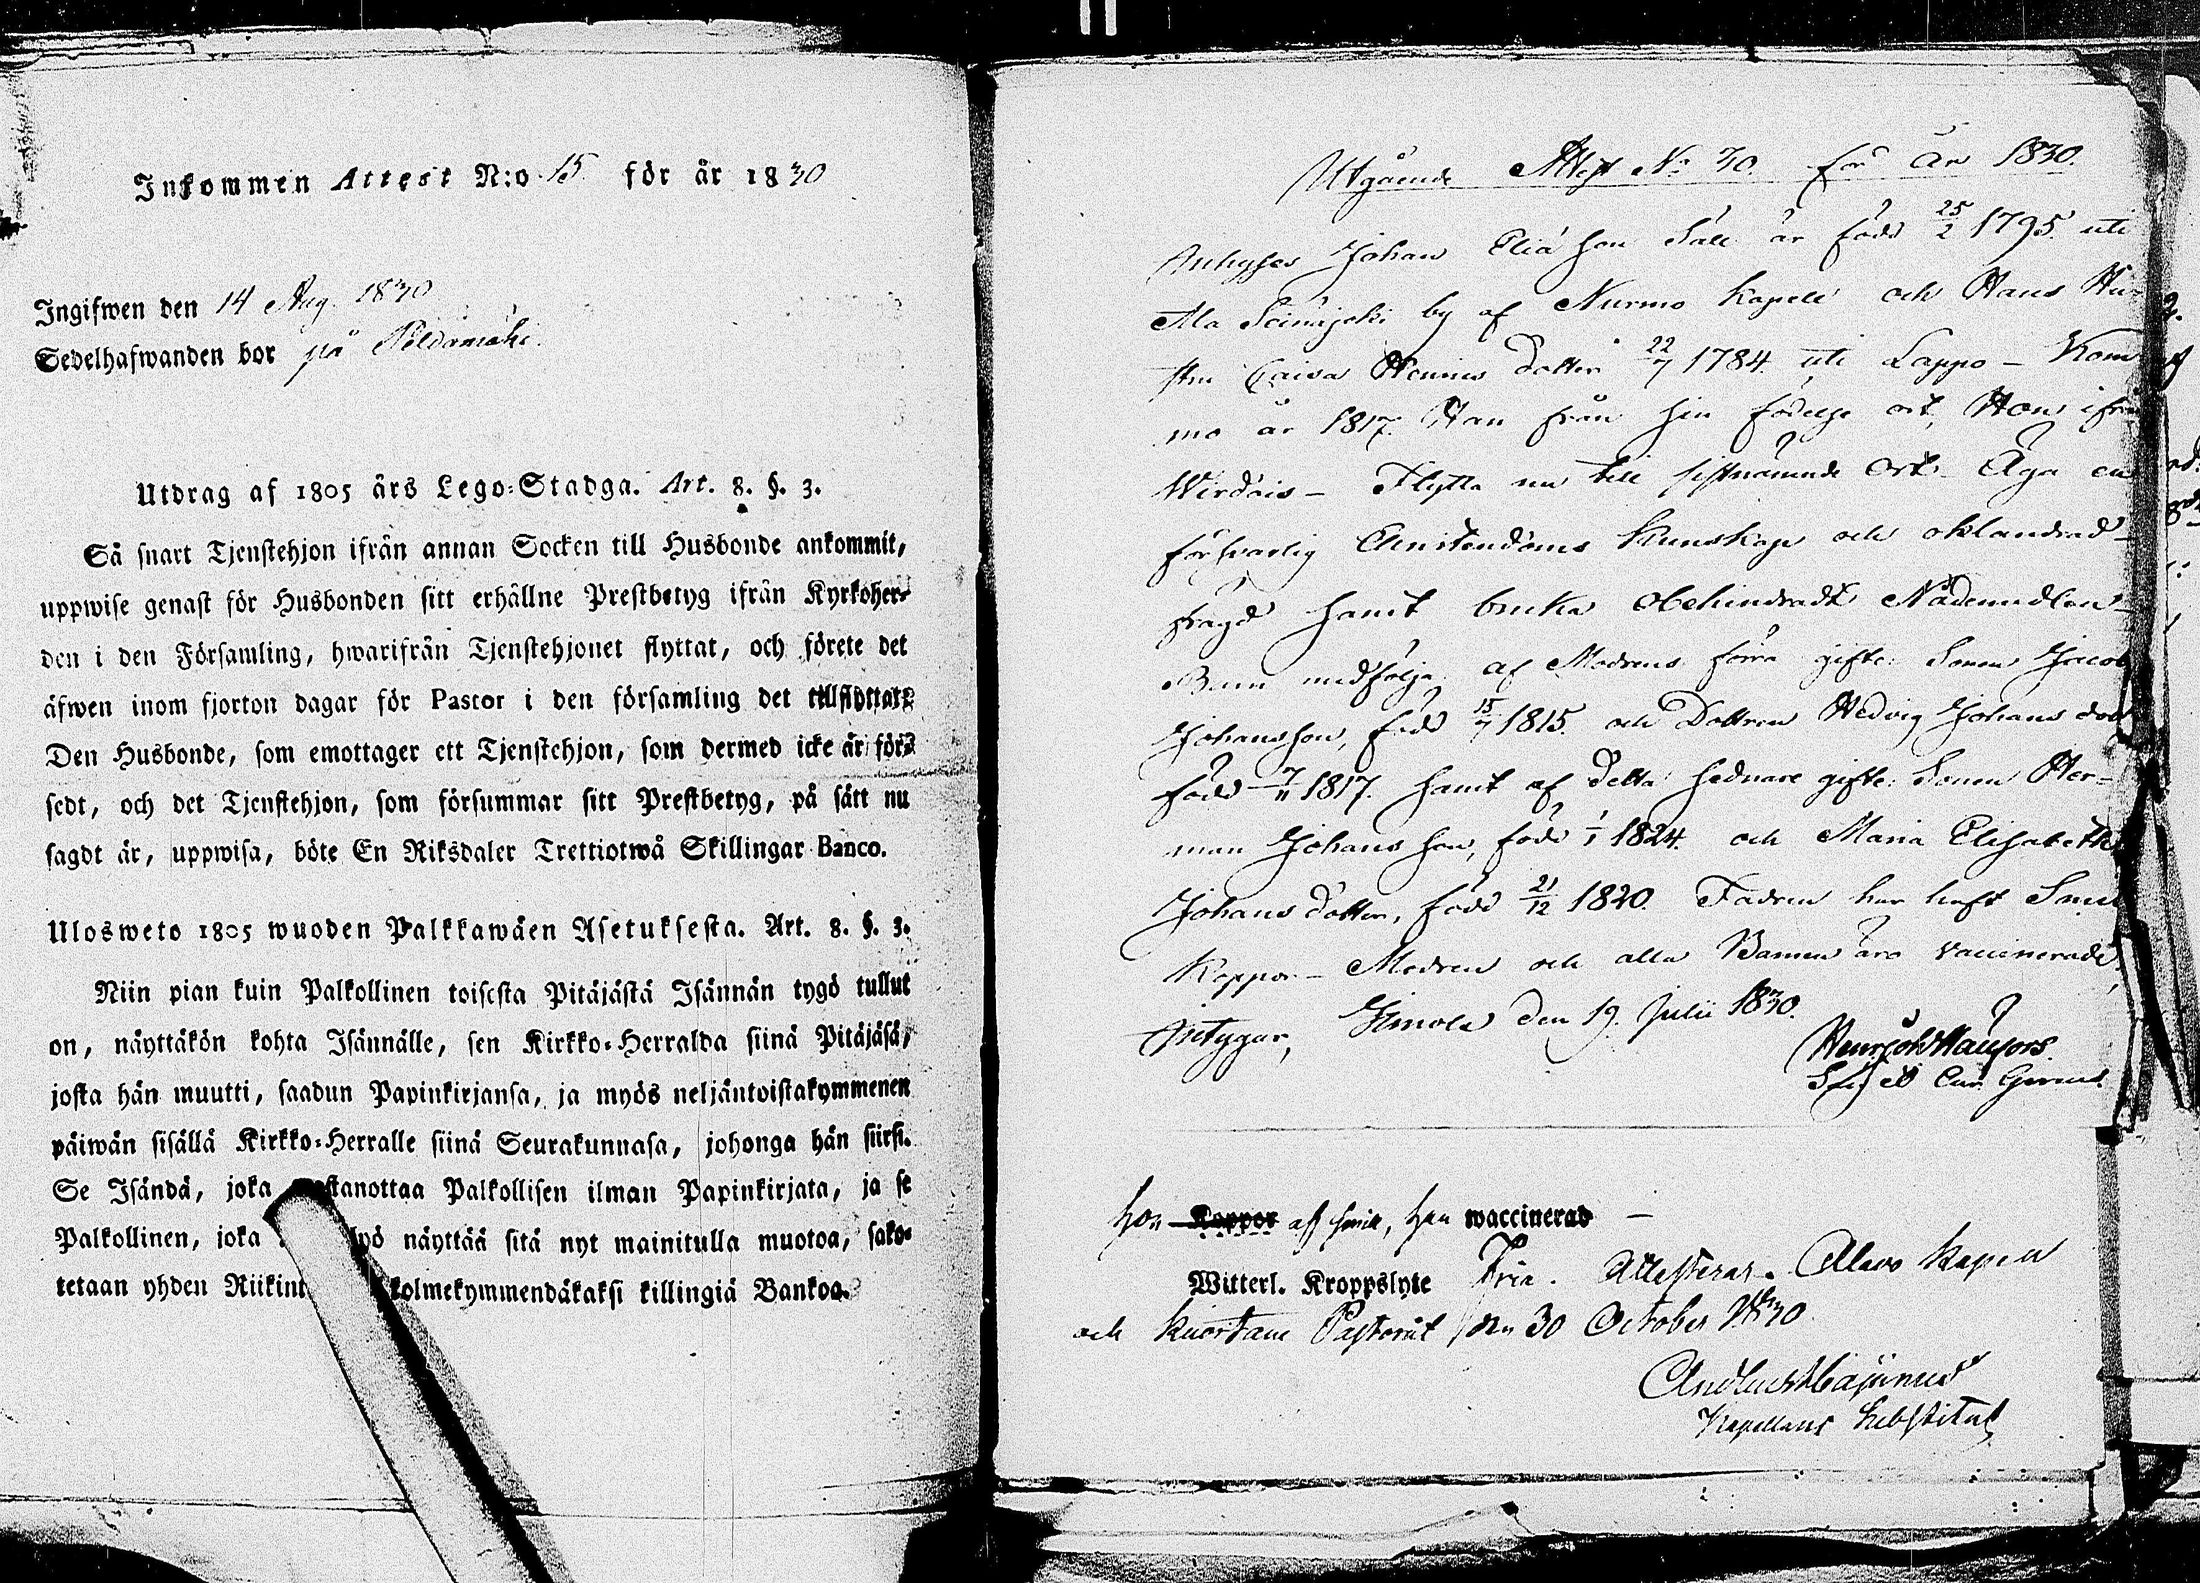 Inkommen Attest N:o 15 för år 1830
Ingifwen den 14 Aug. 1830
Sedelhafwanden bor på Pöldämäki.
Utdrag af 1805 års Lego-Stadga. Art. 8. §. 3.
Så snart Tjenstehjon ifrån annan Socken till Husbonde ankommit,
uppwise genast för Husbonden sitt erhållne Prestbetyg ifrån Kyrkoher-
den i den Församling, hwarifrån Tjenstehjonet flyttat, och förete det
äfwen inom fjorton dagar för Pastor i den församling det tillflyttat.
Den Husbonde, som emottager ett Tjenstehjon, som dermed icke är för-
sedt, och det Tjenstehjon, som försummar sitt Prestbetyg, på sätt nu
sagdt är, uppwisa, böte En Riksdaler Trettiotwå Skillingar Banco.
Ulosweto 1805 wuoden Palkkawäen Asetuksesta. Art. 8. §. 3.
Niin pian kuin Palkollinen toisesta Pitäjästä Isännän tygö tullut
on, näyttäkön kohta Isännälle, sen Kirkko-Herralda siinä Pitäjäsä,
josta hän muutti, saadun Papinkirjansa, ja myös neljäntoistakymmenen
päiwän sisällä Kirkko-Herralle siinä Seurakunnasa, johonga hän siirsi.
Se Isändä, joka stanottaa Palkollisen ilman Papinkirjata, ja se
Palkollinen, joka yö näyttää sitä nyt mainitulla muotoa, sako-
tetaan yhden Riikint kolmekymmendäkaksi killingiä Bankoa.
Utgående Attest No 30. för år 1830.
Inhyses Johan Elia son Sale är född 25/2 1795. uti
Ala Seinäjoki by af Nurmo Kapell och Hans Hu-
stru Caisa Henries dotter 22/7 1784. uti Lappo - Kom
mo år 1817. Han från sin födelse ort, Hon ifrån
Wirdois - Flytta nu till sistnämnde Ort. Äga en
försvarlig Christendoms Kunskap och oklandrad
frägd samt bruka obehindradt Nådemedlen -
Barn medfölja: af Modrens förra gifte: Sonen Jacob
Johansson, född 15/7 1815. och Dottren Hedvig Johans dott
född 7/11 1817. samt af detta sednare gifte: Sonen Her-
man Johans son, född 1/1 1824. och Maria Elisabeth
Johans dotter, född 21/12 1820. Fadren har haft Små
Koppor - Modren och alla Barnen äro vaccinerade.
Intygar, Ilmola den 19. Julii 1830.
Hon Koppor af sma, han waccinerad —
Witterl. Kroppslyte Fria. Attesteras. Alavo Kapell
och Kuortane Pastorat den 30 October 1830
Kapellans Substitut